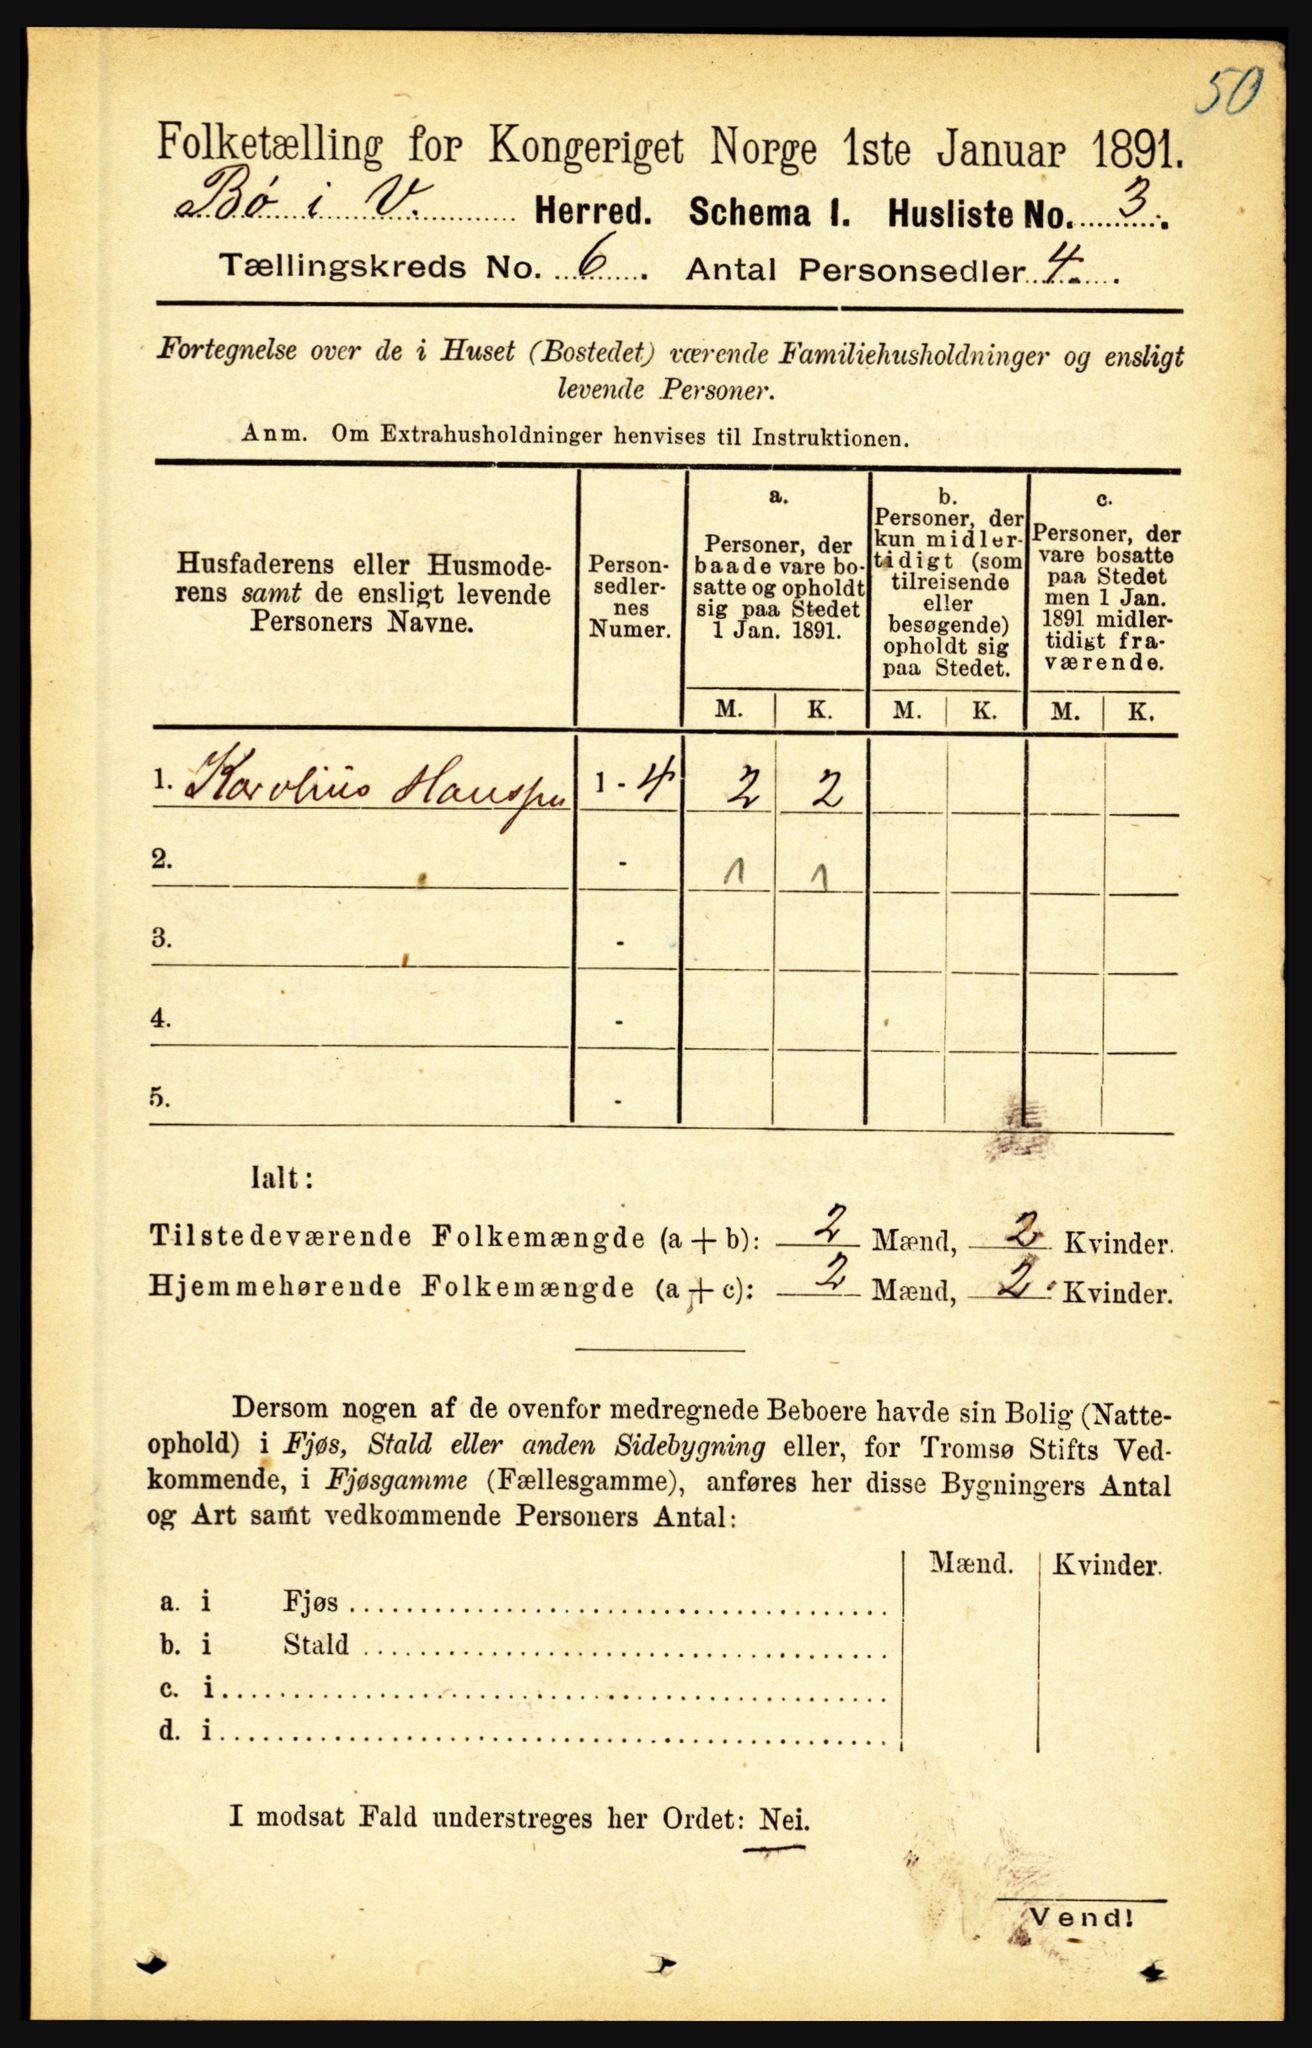 50
Folketælling for Kongeriget Norge 1ste Januar 1891.
Bø i V. Herred. Schema I. Husliste No. 3.
Tællingskreds No. 6. Antal Personsedler 4.
Fortegnelse over de i Huset (Bostedet) værende Familiehusholdninger og ensligt
levende Personer.
Anm. Om Extrahusholdninger henvises til Instruktionen.
Husfaderens eller Husmode-
rens samt de ensligt levende
Personers Navne.
Person-
sedler-
nes
Numer.
a.
Personer, der
baade vare bo-
satte og opholdt
sig paa Stedet
1 Jan. 1891.
b.
Personer, der
kun midler-
tidigt (som
tilreisende
eller
besøgende)
opholdt sig
paa Stedet.
c.
Personer, der
vare bosatte
paa Stedet
men 1 Jan.
1891 midler-
tidigt fra-
værende.
M. K. M. K. M. K.
1. Karolius Hanssen 1 - 4 2 2
2. - 1 1
3. -
4. -
5. -
Ialt:
Tilstedeværende Folkemængde (a + b): 2 Mænd, 2 Kvinder.
Hjemmehørende Folkemængde (a + c): 2 Mænd, 2 Kvinder.
Dersom nogen af de ovenfor medregnede Beboere havde sin Bolig (Natte-
ophold) i Fjøs, Stald eller anden Sidebygning eller, for Tromsø Stifts Ved-
kommende, i Fjøsgamme (Fællesgamme), anføres her disse Bygningers Antal
og Art samt vedkommende Personers Antal:
Mænd. Kvinder.
a. i Fjøs
b. i Stald
c. i
d. i
I modsat Fald understreges her Ordet: Nei.
Vend!